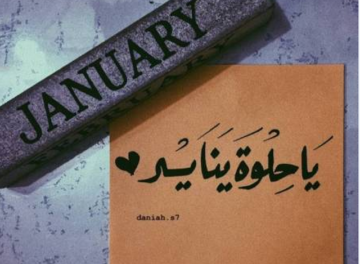 JANUARY
يَا حِلوَة يَنَايـر
daniah.s7